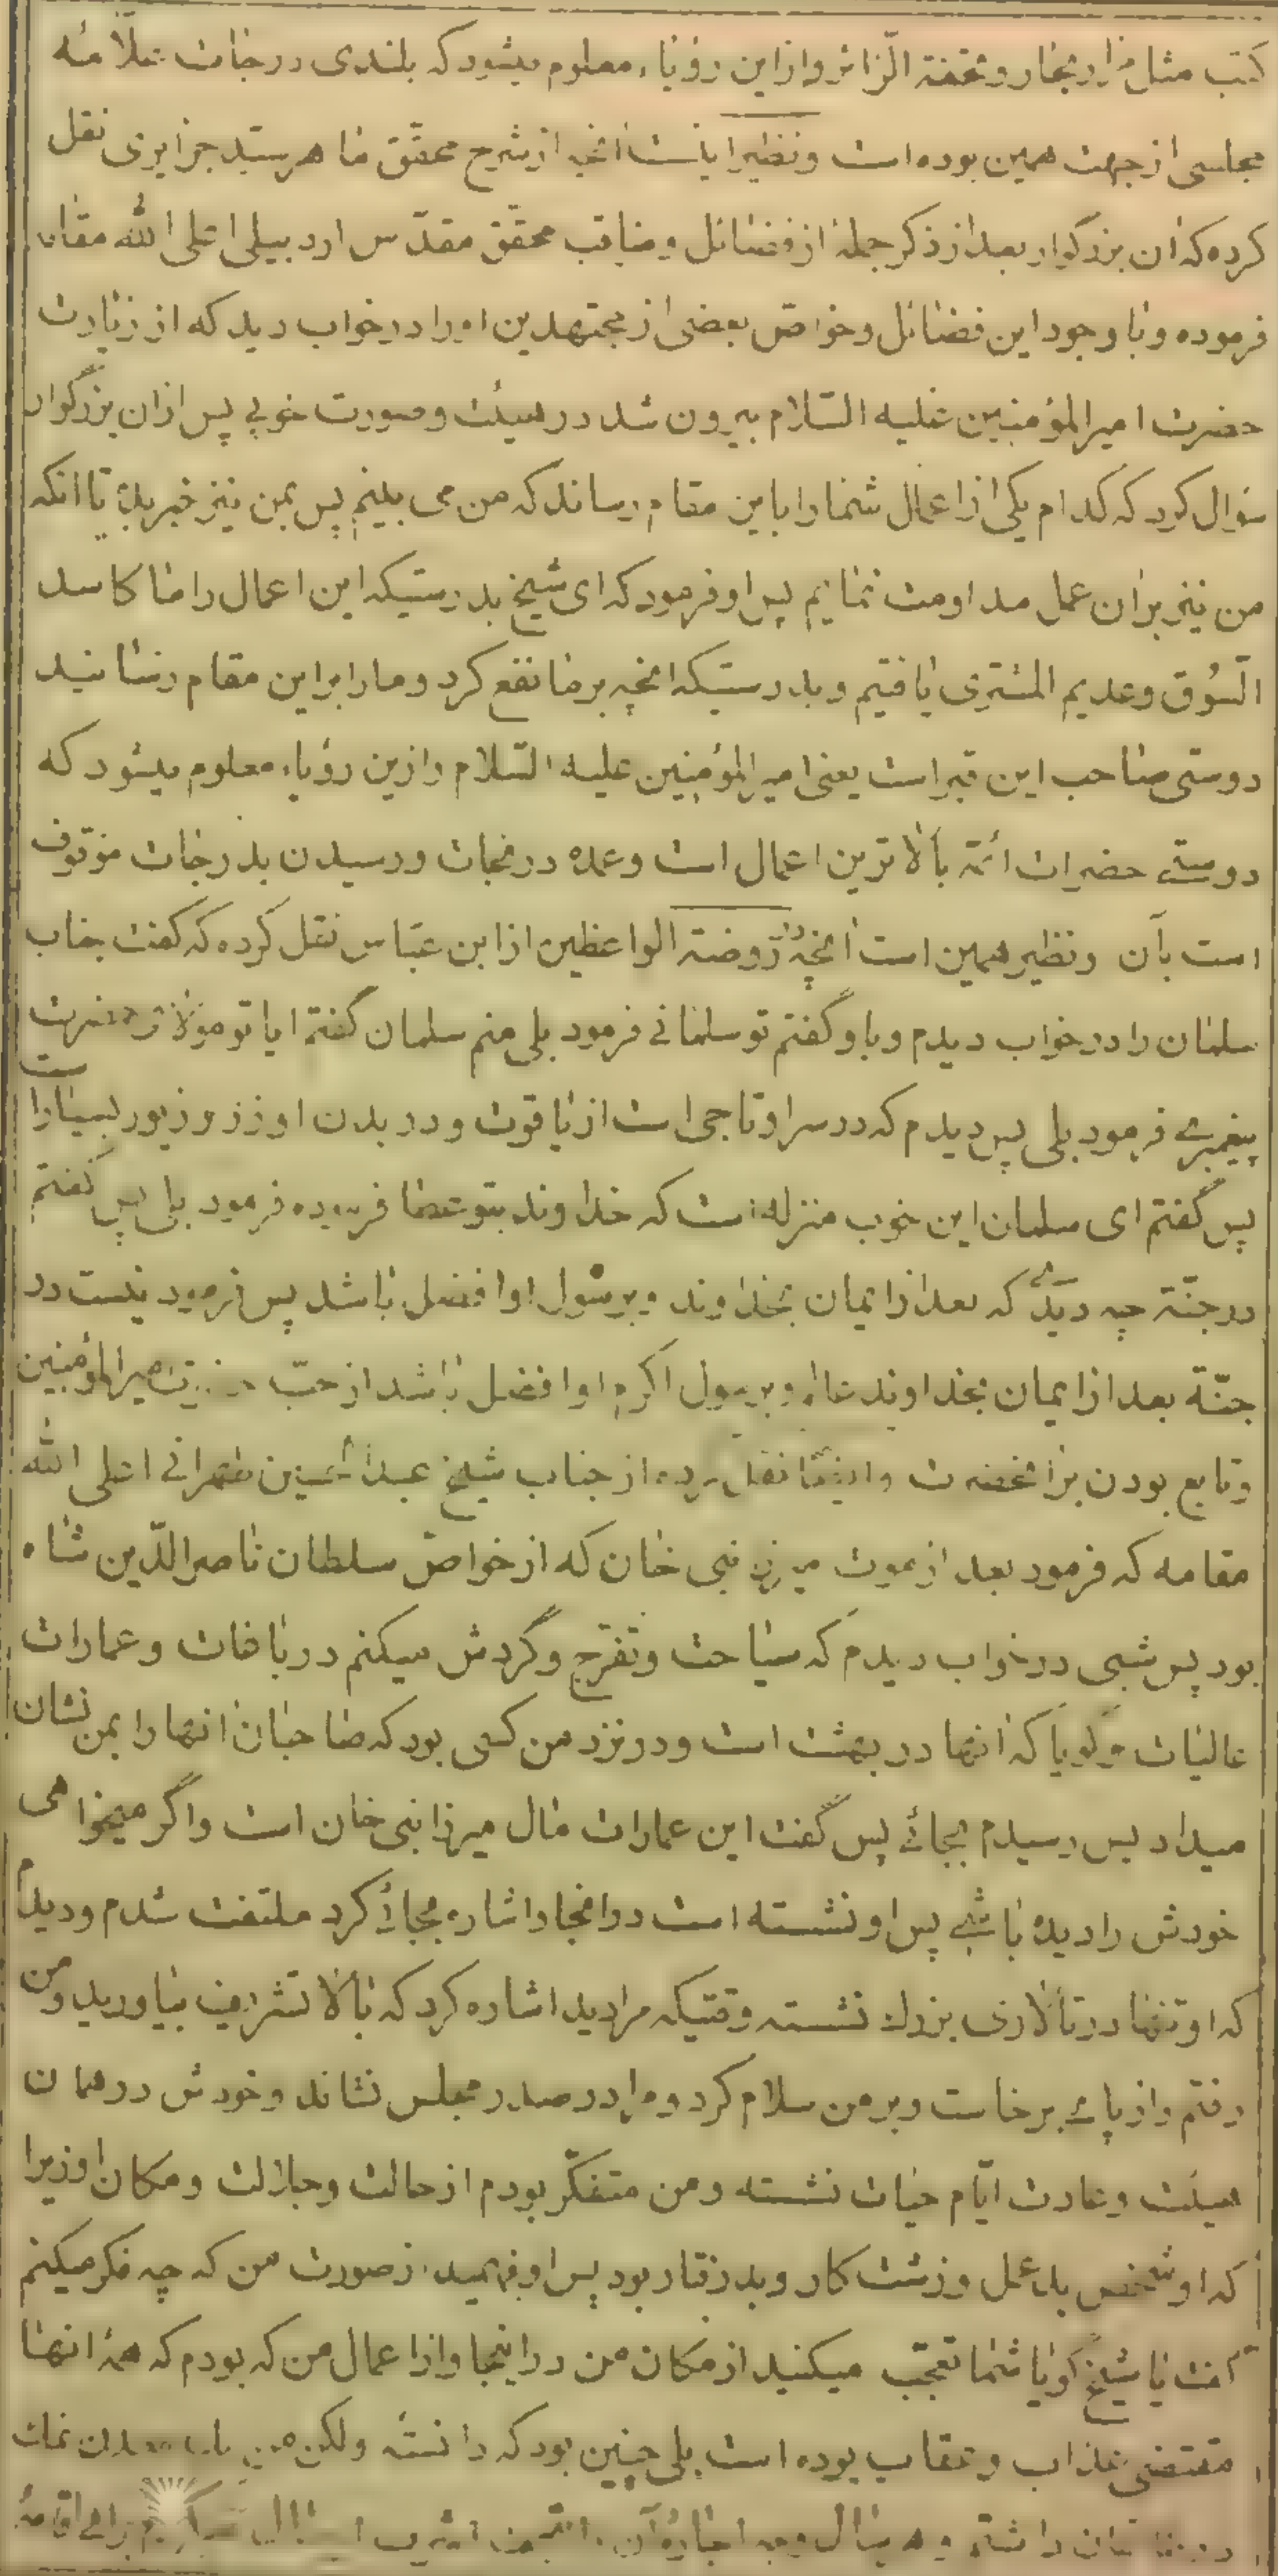 کتب مثل مزار بحار و تحفة الزّائر و از این رؤیاء معلوم میشود که بلندی درجات علاّمه
مجلسی از جهت همین بوده است و نظیر اینست آنچه از شرح محقّق ماهر سیّد جزایری نقل
کرده که آن بزرگوار بعد از ذکر جملهٔ از فضائل و مناقب محقّق مقدّس اردبیلی اعلی الله مقامه
فرموده و با وجود این فضائل و خواصّ بعضی از مجتهدین او را در خواب دید که از زیارت
حضرت امیرالمؤمنین علیه السّلام بیرون شد در هیئت و صورت خوبی پس از آن بزرگوار
سؤال کرد که کدام یکی از اعمال شما را باین مقام رساند که من می بینم پس بمن نیز خبر بده تا آنکه
من نیز بر آن عمل مداومت نمایم پس او فرمود که ای شیخ بدرستیکه این اعمال را ما کاسد
السّوق و عدیم المشتری یافتیم و بدرستیکه آنچه بر ما نفع کرد و ما را بر این مقام رسانید
دوستی صاحب این قبر است یعنی امیرالمؤمنین علیه السّلام و ازین رؤیاء معلوم میشود که
دوستی حضرات ائمّه بالاترین اعمال است و عمده در نجات و رسیدن بدرجات موقوف
است بآن و نظیر همین است آنچه در روضة الواعظین از ابن عبّاس نقل کرده که گفت جناب
سلمان را در خواب دیدم و باو گفتم تو سلمانی فرمود بلی منم سلمان گفتم ایا تو مولای حضرت
پیغمبری فرمود بلی پس دیدم که در سر او تاجی است از یاقوت و در بدن او زر و زیور بسیار است
پس گفتم ای سلمان این خوب منزله است که خداوند بتو عطا فرموده فرمود بلی پس گفتم
در جنّة چه دیدی که بعد از ایمان بخداوند و برسول او افضل باشد پس فرمود نیست در
جنّة بعد از ایمان بخداوند عالم و برسول اکرم او افضل باشد از حبّ حضرت امیرالمؤمنین
و تابع بودن بر آنحضرت و ایضا نقل کرده از جناب شیخ عبدالحسین طهرانی اعلی الله
مقامه که فرمود بعد از موت میرزا نبی خان که از خواصّ سلطان ناصرالدّین شاه
بود پس شبی در خواب دیدم که سیاحت و تفرّج و گردش میکنم در باغات و عمارات
عالیات و گویا که آنها در بهشت است و در نزد من کسی بود که صاحبان آنها را بمن نشان
میداد پس رسیدم بجائی پس گفت این عمارات مال میرزا نبی خان است و اگر میخواهی
خودش را دیده باشی پس او نشسته است در آنجا و اشاره بجائی کرد ملتفت شدم و دیدم
که او تنها در تالاری بزرك نشسته وقتیکه مرا دید اشاره کرد که بالا تشریف بیاورید و من
رفتم و از پای برخاست و بر من سلام کرد و مرا در صدر مجلس نشاند و خودش در همان
هیئت و عادت ایّام حیات نشسته و من متفکّر بودم از حالت و جلالت و مکان او زیرا
که او شخص بد عمل و زشت کار و بد رفتار بود پس او فهمید از صورت من که چه فکر میکنم
گفت یا شیخ گویا شما تعجّب میکنید از مکان من در اینجا و از اعمال من که بودم که همهٔ آنها
مقتضی عذاب و عقاب بوده است بلی چنین بود که دانسته ولکن من معدن نمك
داشتم و هر سال وجه اجارهٔ آن نجف اشرف برای اقامهٔ